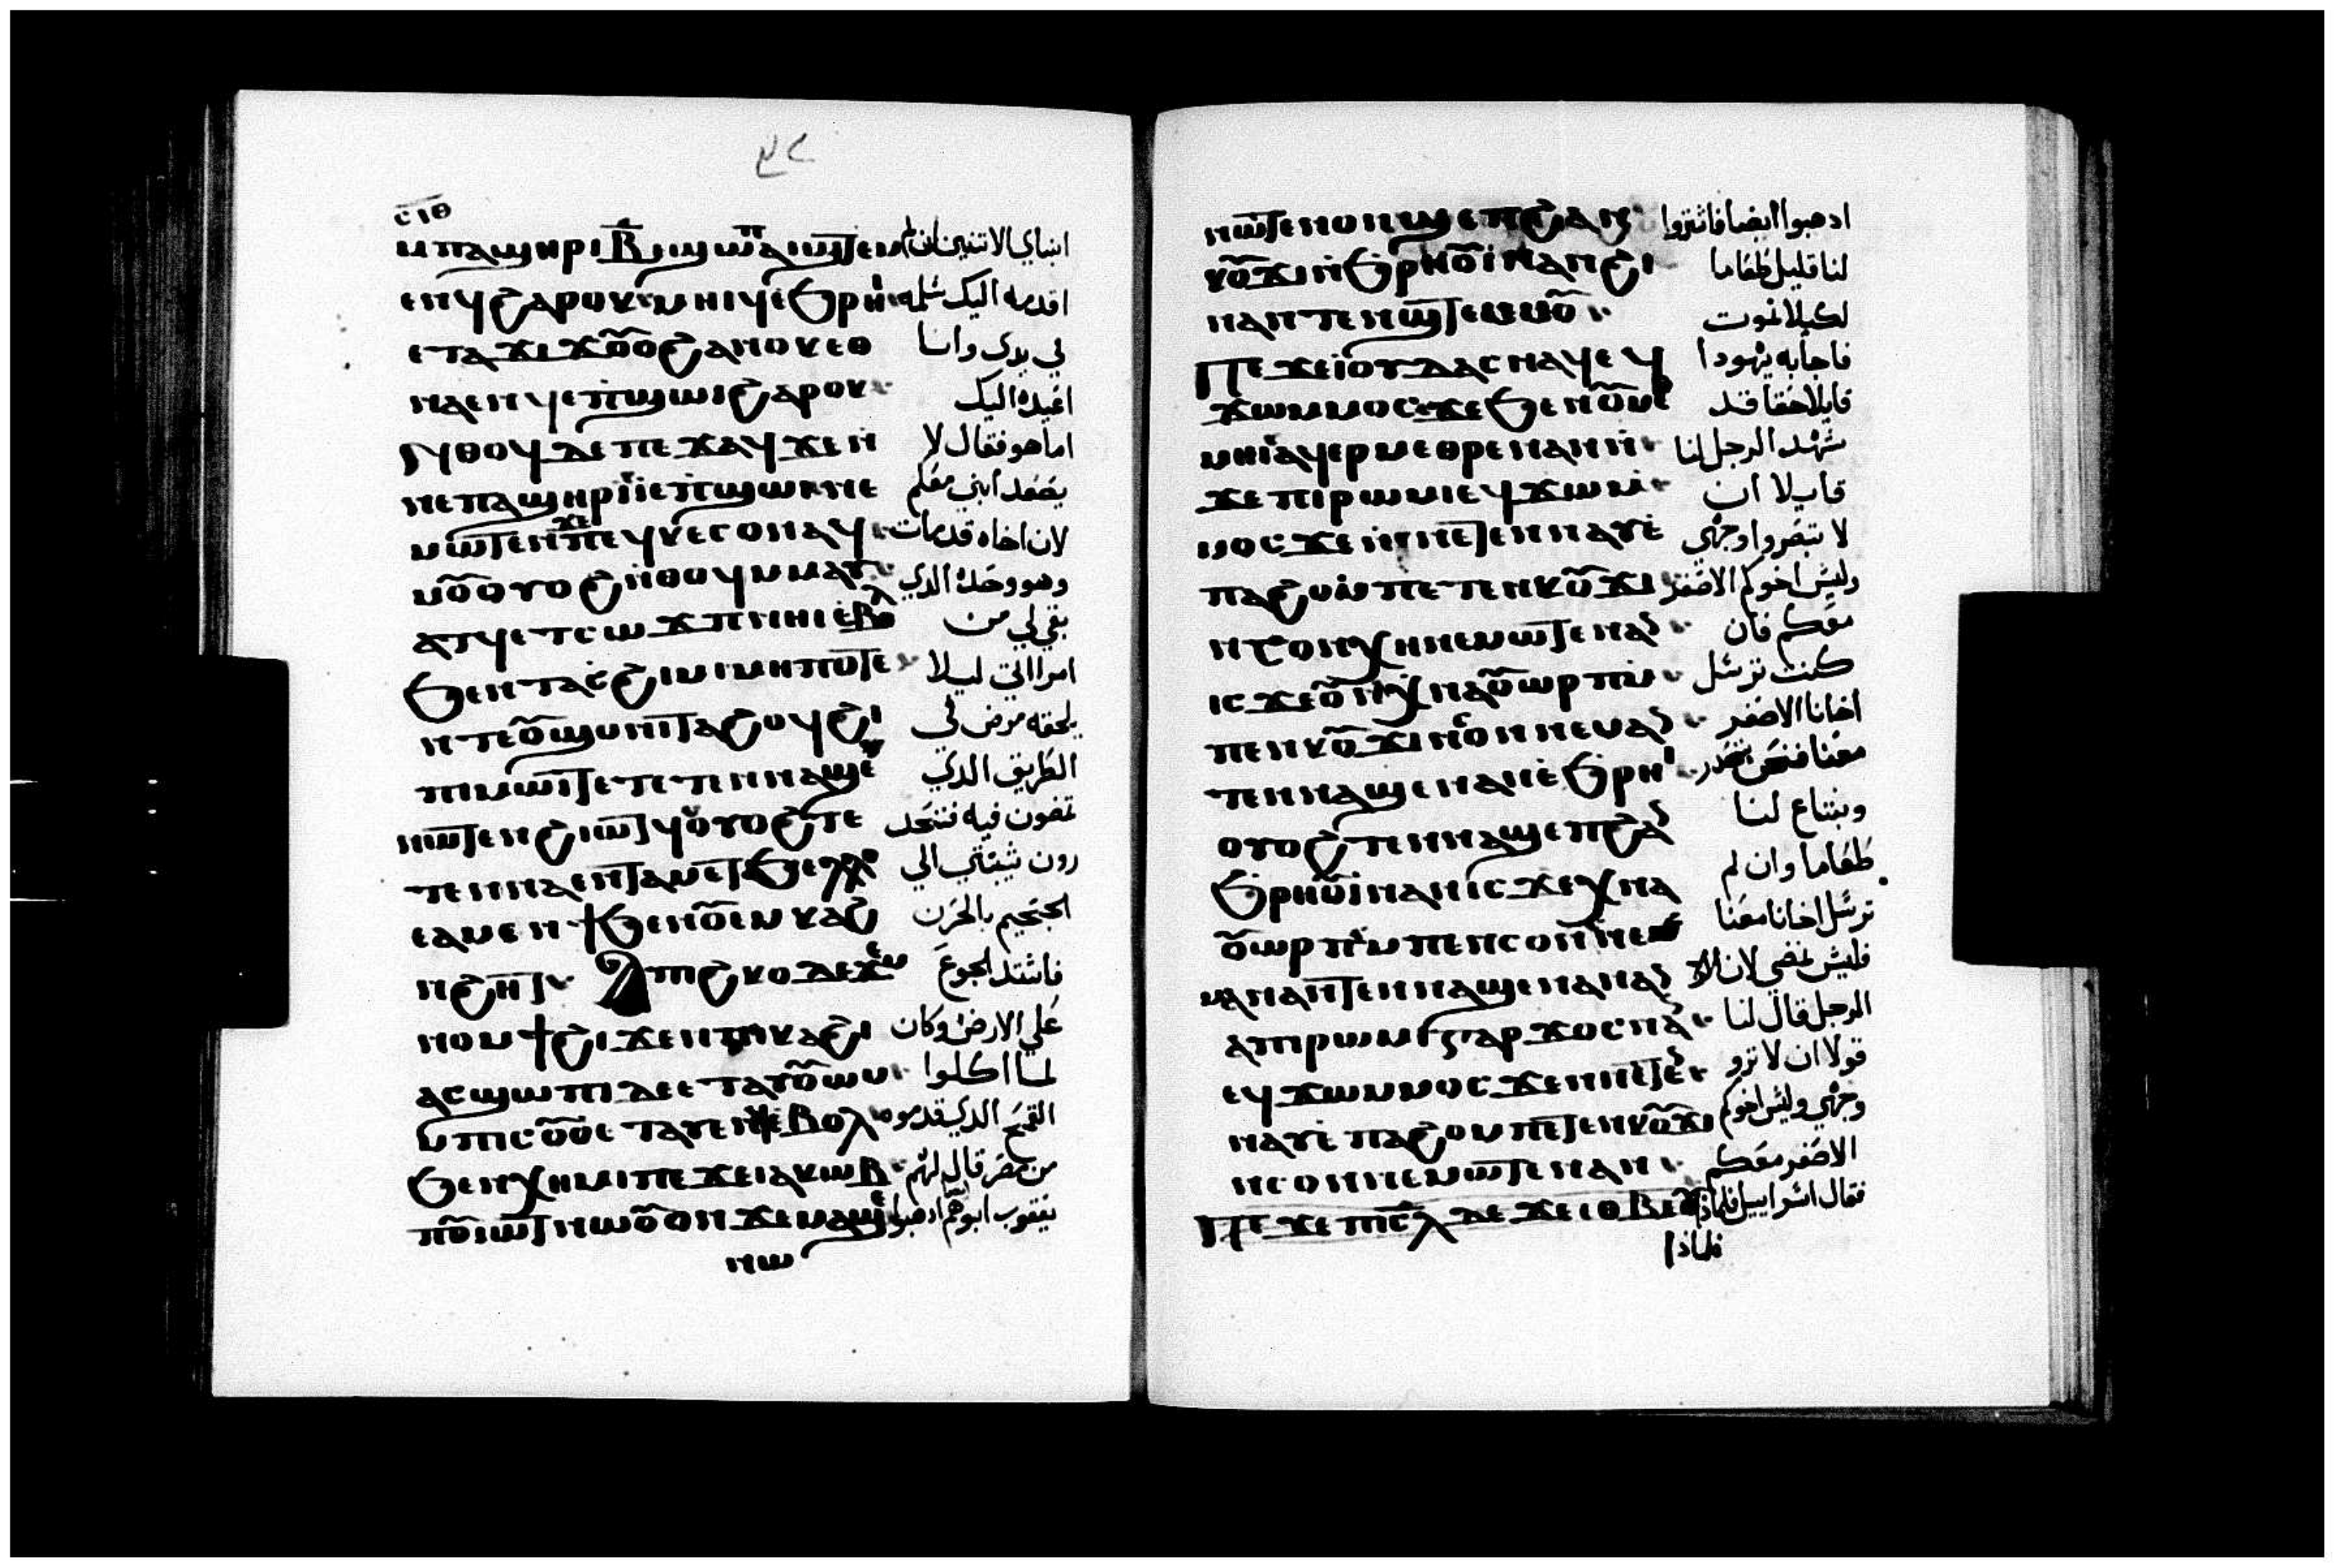 ⲥⲓⲑ
ⲙⲡⲁϣⲏⲣⲓ ⲃ̅ ابناي الاتنين ان لم
ⲉⲛϥ ϩⲁⲣⲟⲕ ⲙⲏⲓϥ ⲉϧⲣⲏⲓ اقدمه اليك سلمه
ⲉⲧⲁϫⲓϫ ⲟⲩⲟϩ ⲁⲛⲟⲕ ⲉⲑ في يدى وانا
ⲛⲁⲉⲛϥ ⲉⲡϣⲱⲓ ϩⲁⲣⲟⲕ اعيده اليك
ⲛⲑⲟϥ ⲇⲉ ⲡⲉϫⲁϥ ϫⲉ ⲛ اما هو فقال لا
ⲛⲉ ⲡⲁϣⲏⲣⲓ ⲓ ⲉⲡϣⲱⲓ ⲛⲉ يصعد ابني معكم
ⲙⲱⲧⲉⲛ ϫⲉ ⲡⲉϥⲕⲉⲥⲟⲛ ⲁϥ لان اخاه قدمات
ⲙⲟⲩ ⲟⲩⲟϩ ⲛⲑⲟϥ ⲙⲙⲁⲩ وهو وحده الدي
ⲁⲧϥ ⲉⲧⲥⲱϫⲡ ⲛⲏⲓ ⲉⲃⲟⲗ بقي لي من
ϧⲉⲛ ⲧⲁⲥϩⲓⲙⲓ ⲙⲏⲡⲟⲧⲉ امراتي ليلا
ⲛⲧⲉ ⲟⲩϣⲱⲛⲓ ⲧⲁϩⲟϥ ϩⲓ يلحقه مرض في
ⲡⲓⲙⲱⲓⲧ ⲉⲧⲉⲧⲛⲛⲁϣⲉ الطريق الدي
ⲛⲱⲧⲉⲛ ϩⲓⲱⲧϥ ⲟⲩⲟϩ ⲧⲉ تمضون فيه فتحد
ⲧⲉⲛⲛⲁⲉⲛ رون شيبتي الي
ⲉⲁⲙⲉⲛϯ ϧⲉⲛ ⲟⲩⲉⲙⲕⲁϩ الججيم بالحزن
ⲛϩⲏⲧ ⲁⲡⲓϩⲕⲟ ⲇⲉ ϫⲉⲙ فاشتد الجوع
ⲛⲟⲙϯ ϩⲓϫⲉⲛ ⲡⲓⲕⲁϩⲓ علي الارض وكان
ⲁⲥϣⲱⲡⲓ ⲇⲉ ⲉⲧⲁⲩⲟⲩⲱⲙ لما اكلوا
ⲙⲡⲓⲥⲟⲩⲟ ⲉⲧⲁⲩⲉⲛϥ ⲉⲃⲟⲗ القمح الدي قدموه
ϧⲉⲛ ⲭⲏⲙⲓ ⲡⲉϫⲉ ⲓⲁⲕⲱⲃ من مصر قال لهم
ⲡⲟⲩⲓⲱⲧ ⲛⲱⲟⲩ ⲟⲛ ϫⲉ ⲙⲁϣⲉ يعقوب ابوهم ادهبوا
ⲛⲱ
ⲛⲱⲧⲉⲛ ⲟⲛ ϣⲉⲡ ϩⲁⲛ ادهبوا ايضا فاشتروا
ⲕⲟⲩϫⲓ ⲛϧⲣⲏⲟⲩⲓ ⲛⲁⲛ ϩⲓ لنا قليل طعاما
ⲛⲁ ⲛⲧⲉⲛϣⲧⲉⲙⲙⲟⲩ لكيلا نموت
ⲡⲉϫⲉ ⲓⲟⲩⲇⲁⲥ ⲛⲁϥ ⲉϥ فاجابه يهودا
ϫⲱ ⲙⲙⲟⲥ ϫⲉ ϧⲉⲛ ⲟⲩⲙⲉ قايلا حقا قد
ⲙⲏⲓ ⲁϥⲉⲣⲙⲉⲑⲣⲉ ⲛⲁⲛ ⲛ شهد الرجل لنا
ϫⲉ ⲡⲓⲣⲱⲙⲓ ⲉϥϫⲱ ⲙ قايلا ان
ⲙⲟⲥ ϫⲉ ⲛⲛⲉⲧⲉⲛⲛⲁⲩ ⲉ لا تبصروا وجهي
ⲡⲁϩⲟ ⲁⲣⲉ ⲡⲉⲧⲉⲛⲕⲟⲩϫⲓ وليس اخوكم الاصغر
ⲛⲥⲟⲛ ⲭⲏ ⲛⲉⲙⲱⲧⲉⲛ ⲁⲛ معكم فان
ⲓⲥϫⲉ ⲟⲩⲛ ⲭⲛⲁⲟⲩⲱⲣⲡ ⲙ كنت ترسل
ⲡⲉⲛⲕⲟⲩϫⲓ ⲛⲥⲟⲛ ⲛⲉⲙⲁⲛ اخانا الاصغر
ⲧⲉⲛⲛⲁϣⲉ ⲛⲁⲛ ⲉϧⲣⲏⲓ معنا فنحن نحدر
ⲟⲩⲟϩ ⲧⲉⲛⲛⲁϣⲉⲡ ϩⲁⲛ ونبتاع لنا
ϧⲣⲏⲟⲩⲓ ⲛⲁⲛ ⲓⲥϫⲉ ⲭⲛⲁ طعاما وان لم
ⲟⲩⲱⲣⲡ ⲁⲛ ⲙⲡⲉⲛⲥⲟⲛ ⲛⲉⲙ ترسل اخانا معنا
ⲙⲁⲛ ⲁⲛ ⲧⲉⲛⲛⲁϣⲉ ⲛⲁⲛ ⲁⲛ فليس نمضي لان
ⲁⲡⲓⲣⲱⲙⲓ ⲅⲁⲣ ϫⲟⲥ ⲛⲁⲛ الرجل قال لنا
ⲉϥϫⲱ ⲙⲙⲟⲥ ϫⲉ ⲛⲛⲉⲧⲉⲛ قولا ان لا ترو
ⲛⲁⲩ ⲉ ⲡⲁϩⲟ ⲙⲡⲉⲧⲉⲛⲕⲟⲩϫⲓ وجهي وليس اخوكم
ⲛⲥⲟⲛ ⲛⲉⲙⲱⲧⲉⲛ ⲁⲛ الاصغر معكم
ⲡⲉϫⲉ ⲡⲓⲥⲗ ⲇⲉ ϫⲉ ⲉⲑⲃⲉⲟⲩ فقال اسراييل فلماذا
فلماذا